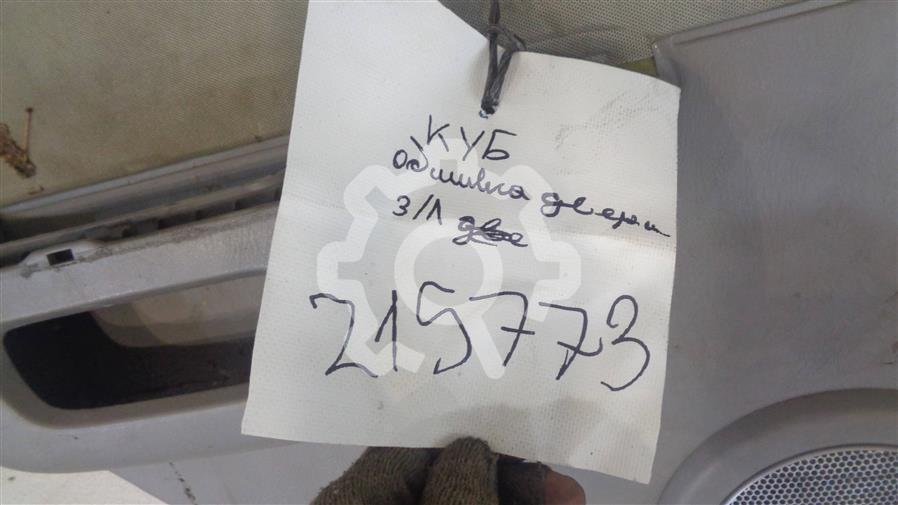 КУБ
Обшивка двери
З/Л
215773